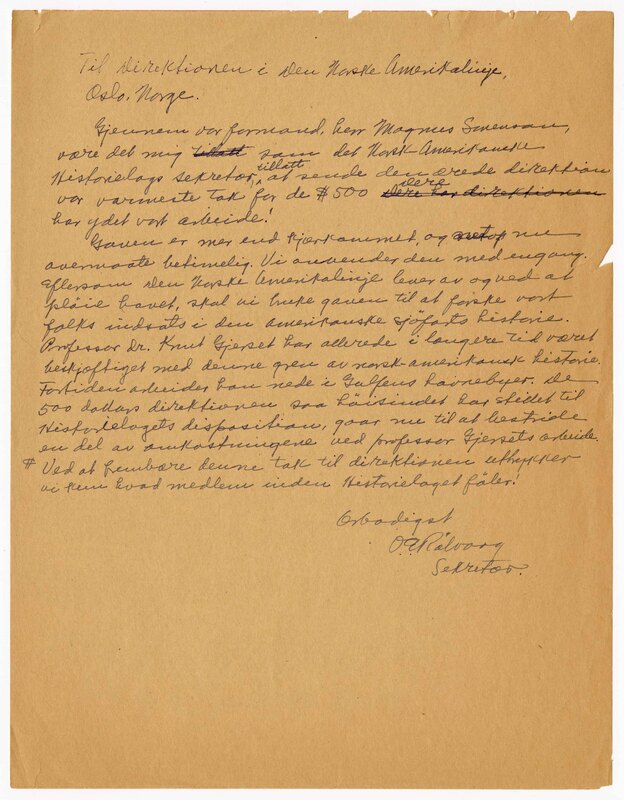 Til direktionen i Den Norske Amerikalinje,
Oslo, Norge.
Gjennem vor formand, herr Magnus Swenson,
være det mig tillatt som det Norsk-Amerikanske
tillatt
Historielags sekretær, at sende den ærede direktion
dere
vor varmeste tak for de $500 dere har direktionen
har ydet vort arbeide!
Gaven er mer end kjærkommet, og netop nu
overmaate betimelig. Vi anvender den med engang.
Eftersom Den Norske Amerikalinje lever av og ved at
pløie havet, skal vi bruke gaven til at forske vort
folks indsats i den amerikanske sjöfarts historie.
Professor Dr. Knut Gjerset har allerede i længere tid været
beskjæftiget med denne gren av norsk-amerikansk historie.
For tiden arbeider han nede i Gulfens havnebyer. De
500 dollars direktionen saa höisindet har stillet til
Historielagets disposition, gaar nu til at bestride
en del av omkostningene ved professor Gjersets arbeide.
# Ved at frembære denne tak til direktionen uttrykker
vi kun hvad medlem inden Historielaget föler!
Ærbødigst
O.E. Rölvaag
Sekretær.